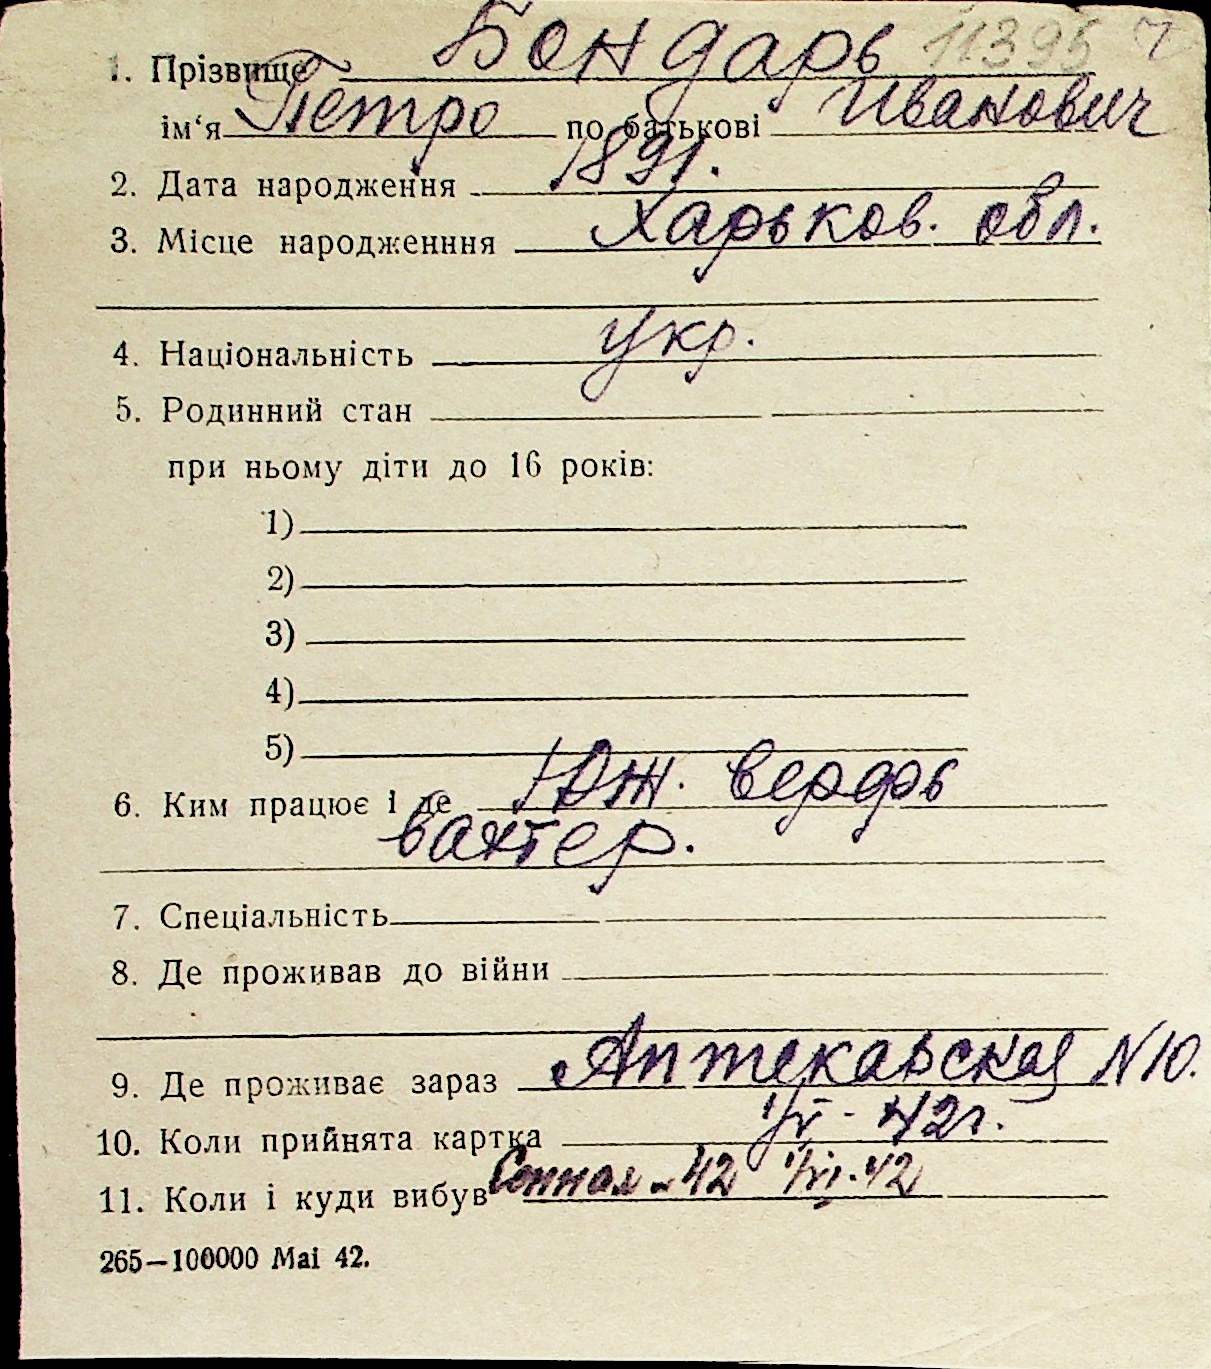 1. Прізвище Бондарь 11395
ім‘я Петро по батькові Иванович
2. Дата народження 1891.
3. Місце народженння Харьков. обл.
4. Національність укр.
5. Родинний стан
при ньому діти до 16 років:
1)
2)
3)
4)
5)
6. Ким працює і де Юж. верфь
вахтер.
7. Спеціальність
8. Де проживав до війни
9. Де проживає зараз Аптекарская N10.
10. Коли прийнята картка 42г.
11. Коли і куди вибув Сенная 42
265—100000 Mai 42.